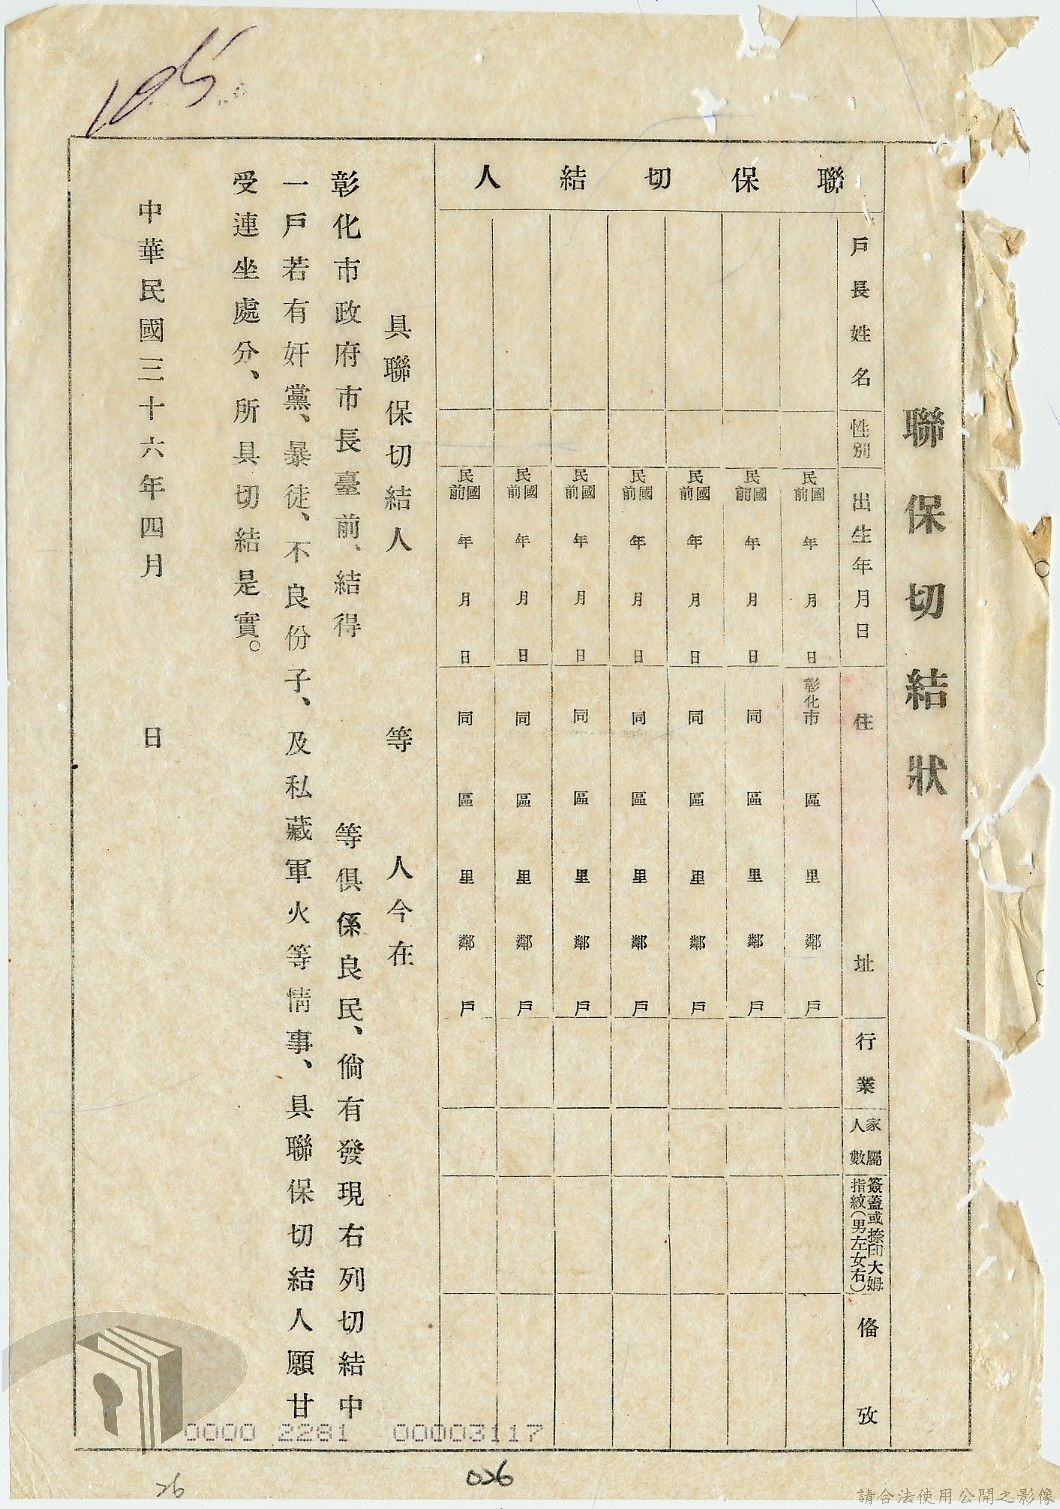 105
聯保切結狀
聯保切結人
戶長姓名
性別
出生年月日
住址
行業
家屬人數
簽蓋或捺印大姆指紋(男左女右)
俻攷
民國前 年 月 日 彰化市 區 里 鄰 戶
民國前 年 月 日 同 區 里 鄰 戶
民國前 年 月 日 同 區 里 鄰 戶
民國前 年 月 日 同 區 里 鄰 戶
民國前 年 月 日 同 區 里 鄰 戶
民國前 年 月 日 同 區 里 鄰 戶
民國前 年 月 日 同 區 里 鄰 戶
具聯保切結人 等 人今在
彰化市政府市長臺前、結得 等俱係良民、倘有發現右列切結中
一戶若有奸黨、暴徒、不良份子、及私藏軍火等情事、具聯保切結人願甘
受連坐處分、所具切結是實。
中華民國三十六年四月 日
0000 2281 00003117
26
026
請合法使用公開之影像